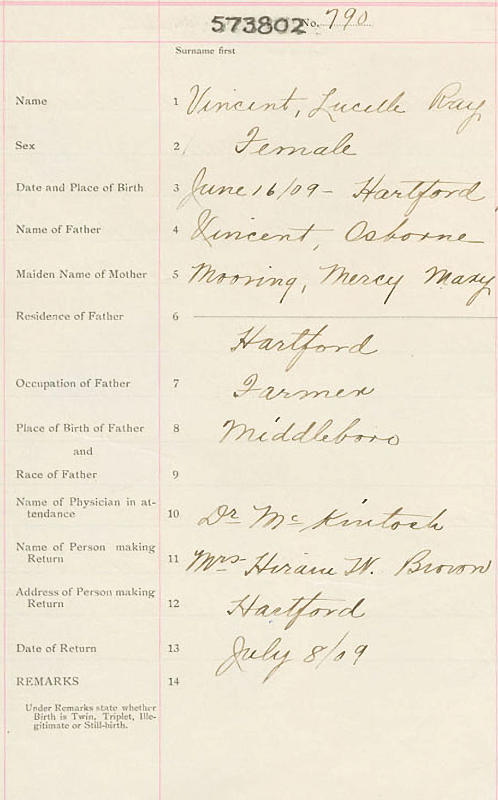 573802 No. 790
Surname first
Name 1 Vincent, Lucille Ray
Sex 2 Female
Date and Place of Birth 3 June 16/09 - Hartford
Name of Father 4 Vincent, Osborne
Maiden Name of Mother 5 Mooring, Mercy Mary
Residence of Father 6
Hartford
Occupation of Father 7 Farmer
Place of Birth of Father 8 Middleboro
and
Race of Father 9
Name of Physician in at-
tendance 10 Dr Mc Kintosh
Name of Person making
Return 11 Mrs Hiram W. Brown
Address of Person making
Return 12 Hartford
Date of Return 13 July 8/09
REMARKS 14
Under Remarks state whether
Birth is Twin, Triplet, Ille-
gitimate or Still-birth.